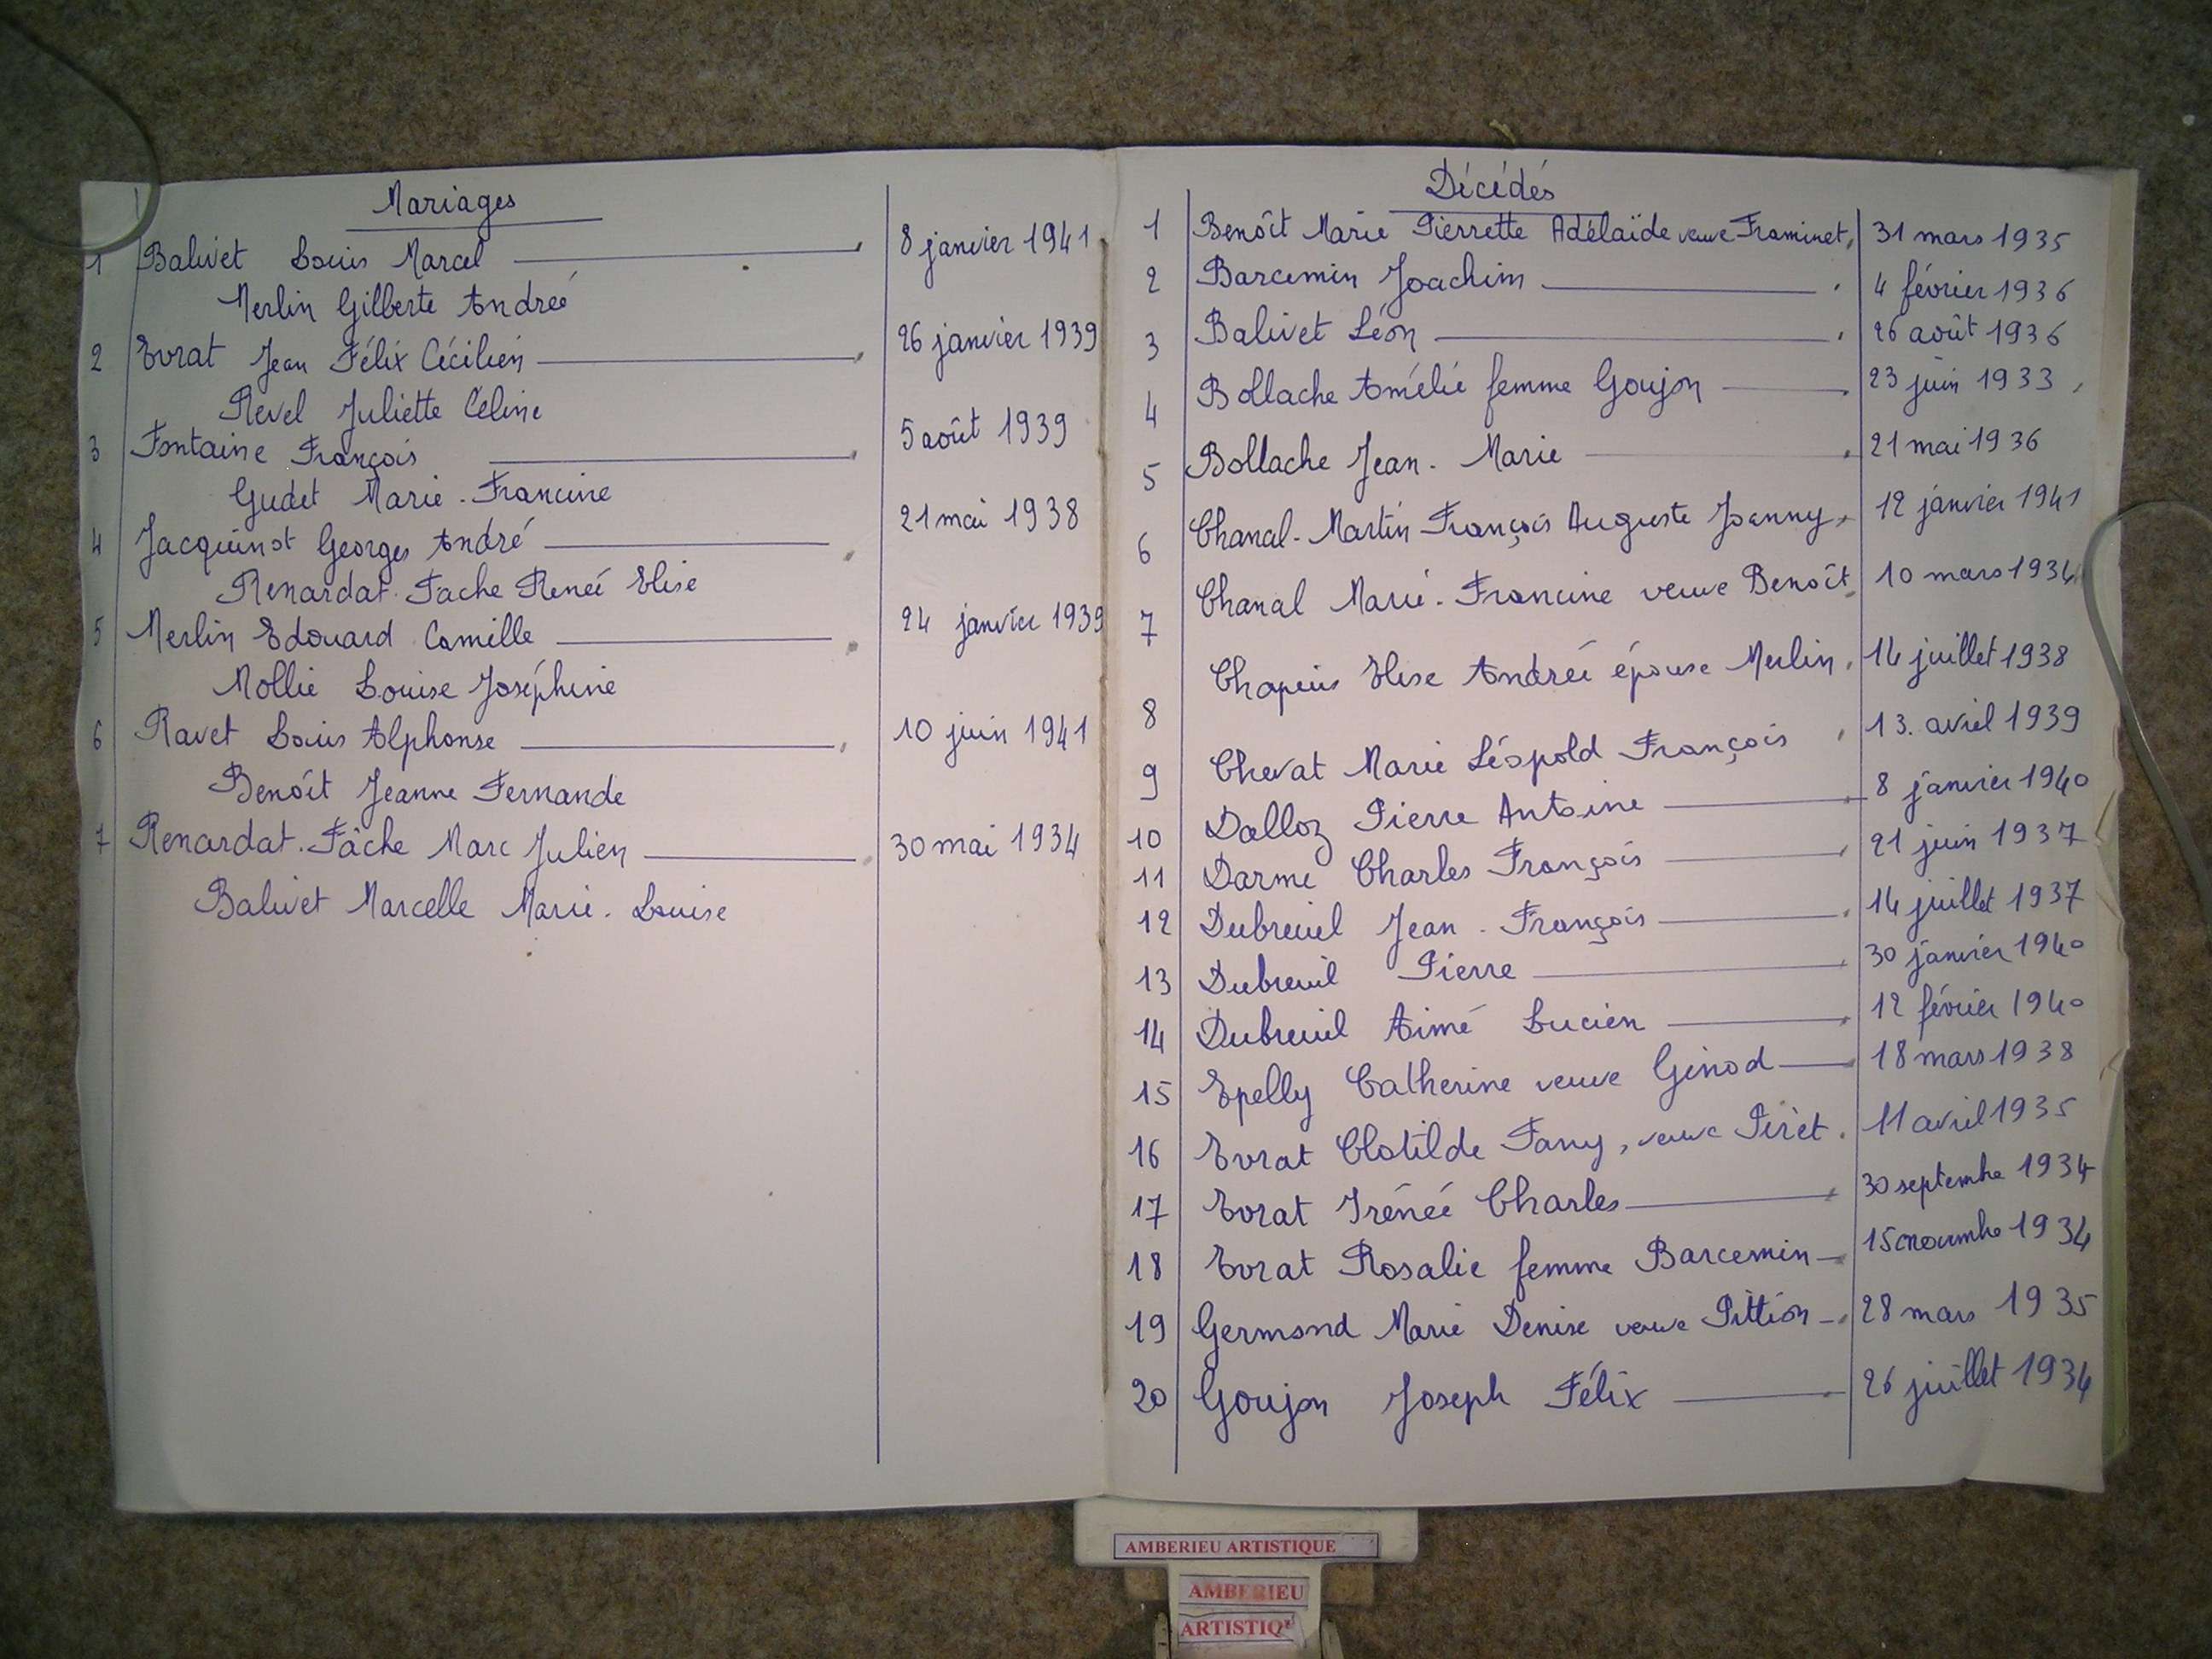 Mariages
1 Balivet Louis Marcel 8 janvier 1941
Merlin Gilberte Andrée
2 Evrat Jean Félix Cécilien 26 janvier 1939
Revel Juliette Céline
3 Fontaine François 5 août 1939
Gudet Marie-Francine
4 Jacquinot Georges André 21 mai 1938
Renardat-Fache Renée Elise
5 Merlin Edouard Camille 24 janvier 1939
Mollie Louise Joséphine
6 Ravet Louis Alphonse 10 juin 1941
Benoît Jeanne Fernande
7 Renardat-Fâche Marc Julien 30 mai 1934
Balivet Marcelle Marie-Louise
Décédés
1 Benoît Marie Pierrette Adélaïde veuve Framinet, 31 mars 1935
2 Barcemin Joachim 4 février 1936
3 Balivet Léon 26 août 1936
4 Bollache Amélie femme Goujon 23 juin 1933
5 Bollache Jean-Marie 21 mai 1936
6 Chanal-Martin François Auguste Joanny 12 janvier 1941
7 Chanal Marie-Francine veuve Benoît 10 mars 1934
8 Chapuis Elise Andrée épouse Merlin 14 juillet 1938
9 Chevat Marie Léopold François 13. avril 1939
10 Dalloz Pierre Antoine 8 janvier 1940
11 Darme Charles François 21 juin 1937
12 Dubreuil Jean-François 14 juillet 1937
13 Dubreuil Pierre 30 janvier 1940
14 Dubreuil Aimé Lucien 12 février 1940
15 Epelly Catherine veuve Ginod 18 mars 1938
16 Evrat Clotilde Fany, veuve Pirèt 11 avril 1935
17 Evrat Irénée Charles 30 septembre 1934
18 Evrat Rosalie femme Barcemin 15 novembre 1934
19 Germond Marie Denise veuve Pittion 28 mars 1935
20 Goujon Joseph Félix 26 juillet 1934
AMBERIEU ARTISTIQUE
AMBERIEU
ARTISTIQU